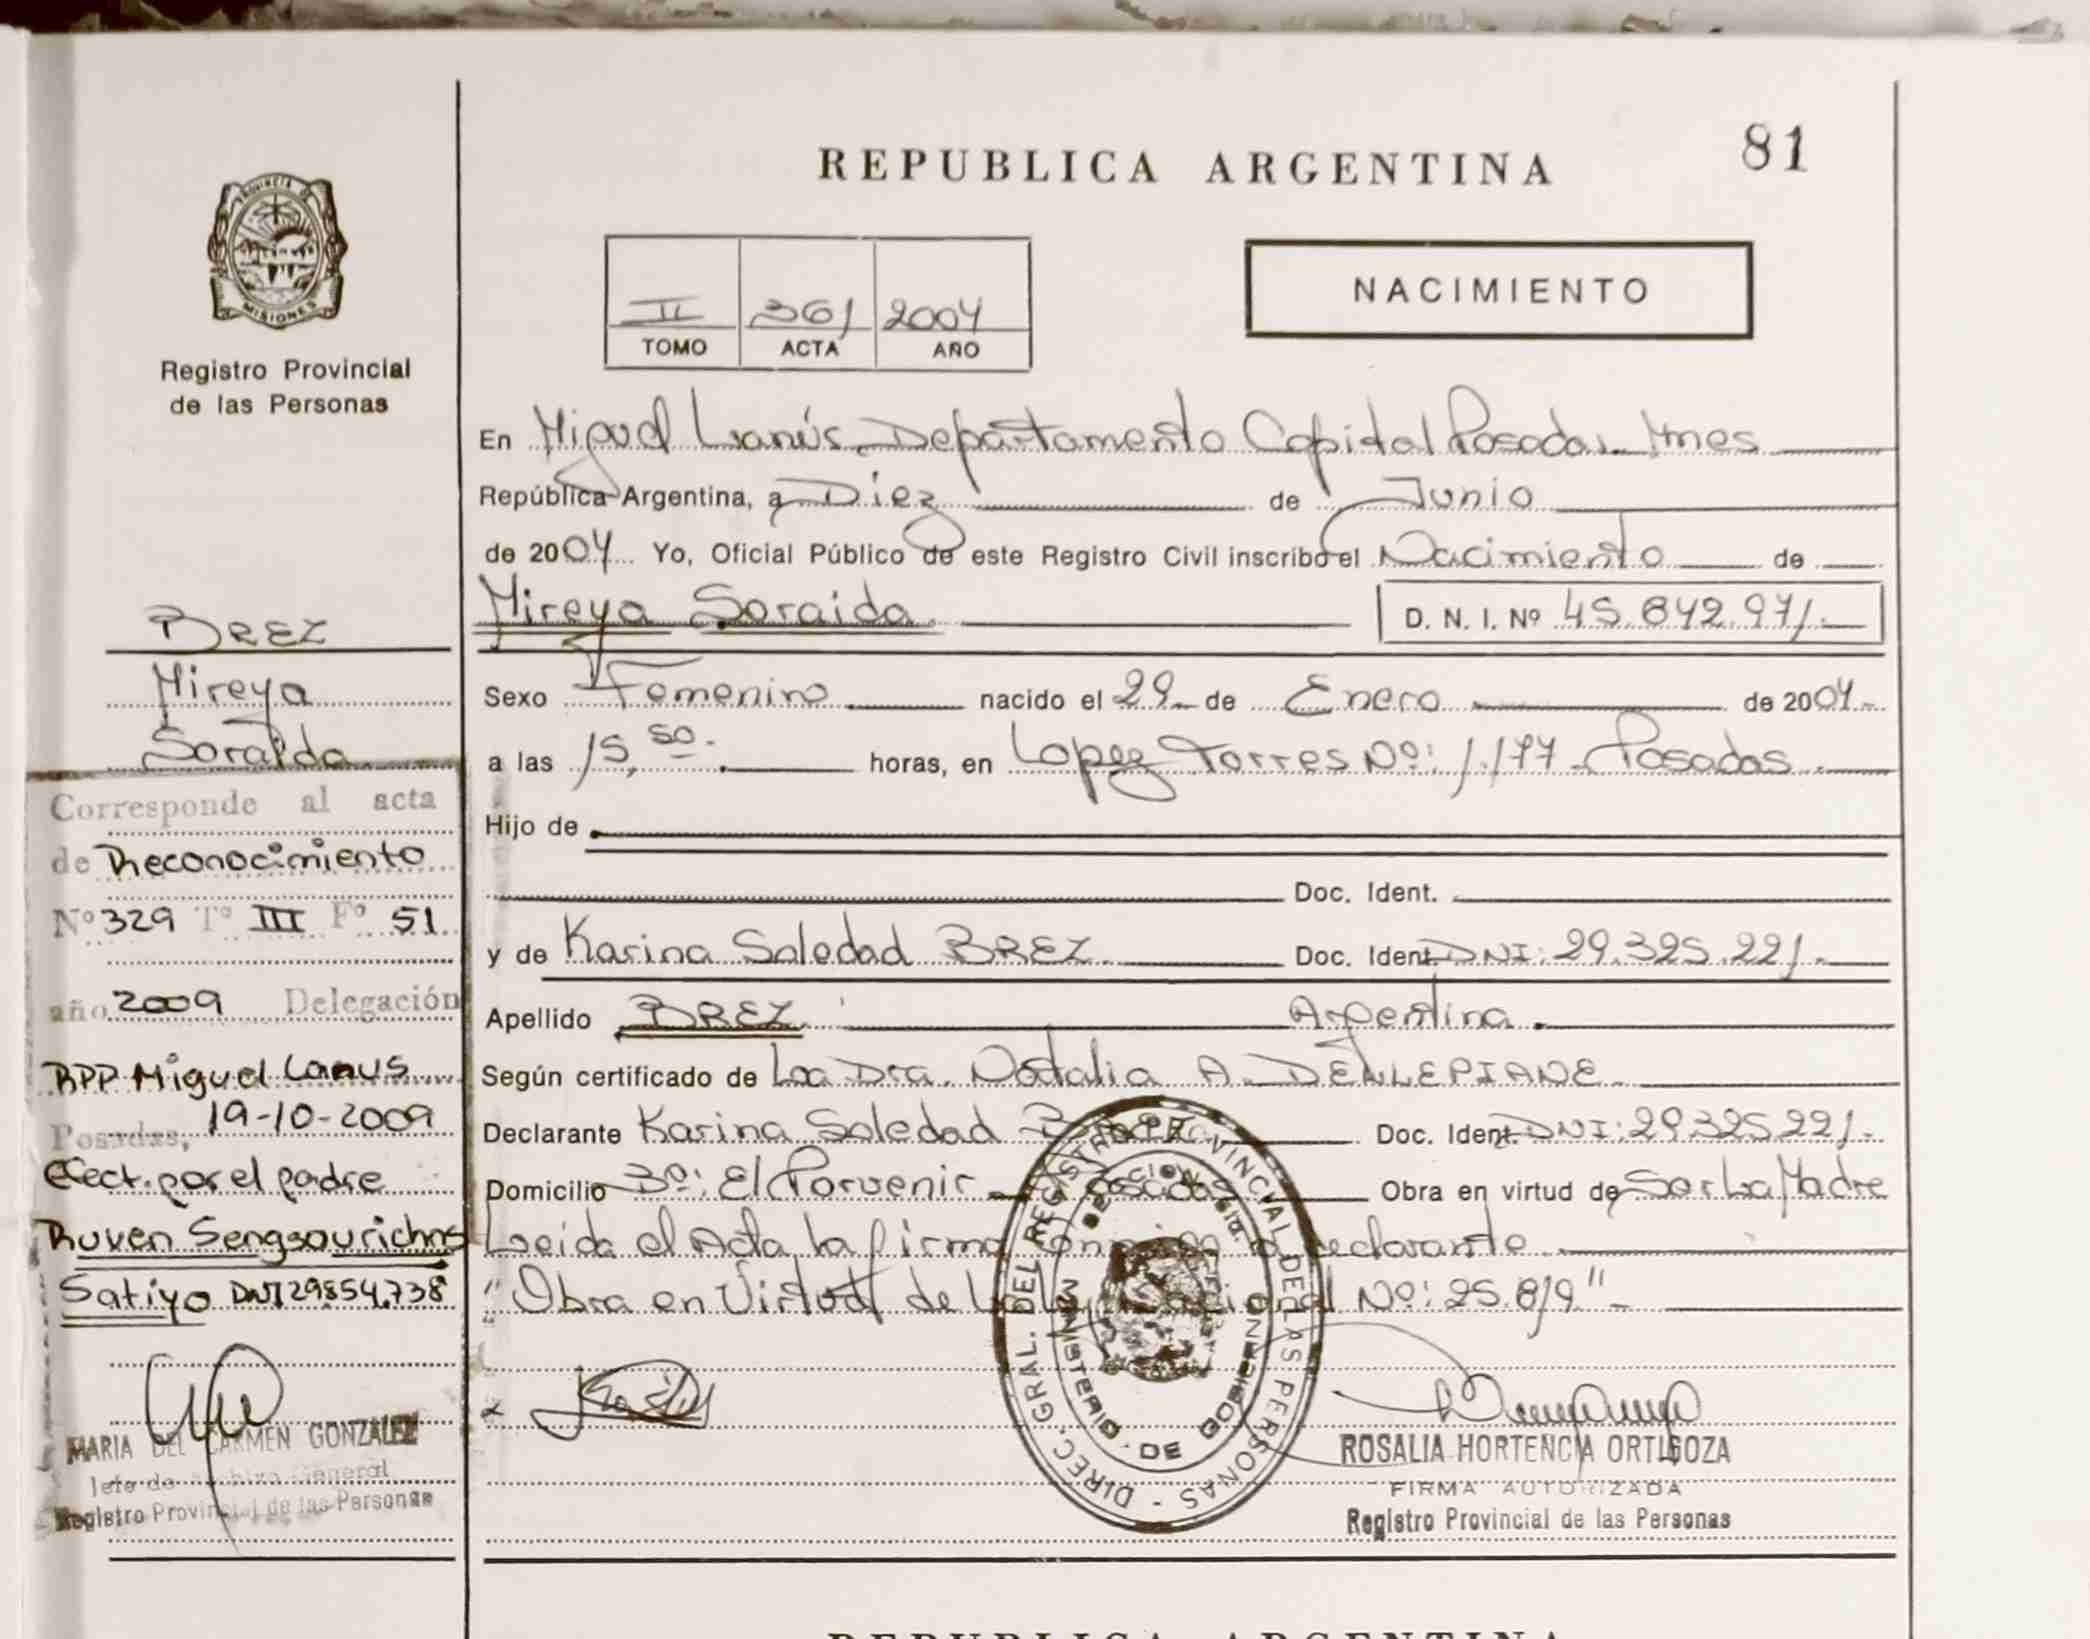 REPUBLICA ARGENTINA
81
PROVINCIA DE
MISIONES
Registro Provincial
de las Personas
II 361 2004
TOMO ACTA AÑO
NACIMIENTO
En Miguel Lanús, Departamento Capital Posadas Mnes
República Argentina, a Diez de Junio
de 2004 Yo, Oficial Público de este Registro Civil inscribo el Nacimiento de
Mireya Soraida D. N. I. Nº 45.842.971.-
Sexo Femenino nacido el 29 de Enero de 2004.-
a las 15,50. horas, en Lopez Torres Nº: 1.177 - Posadas.
Hijo de
Doc. Ident.
y de Karina Soledad BREZ Doc. Ident. DNI: 29.325.221.-
Apellido BREZ Argentina.
Según certificado de La Dra. Natalia A. DELLEPIANE
Declarante Karina Soledad BREZ Doc. Ident. DNI: 29.325.221.-
Domicilio Bº: El Porvenir - Posadas Obra en virtud de Ser La Madre
Leida el Acta la firma declarante
"Obra en Virtud de Ley Nacional Nº: 25.819".-
DIREC. GRAL. DEL REGISTRO PROVINCIAL DE LAS PERSONAS -
MINISTERIO DE GOBIERNO
ROSALIA HORTENCIA ORTIGOZA
FIRMA AUTORIZADA
Registro Provincial de las Personas
BREZ
Mireya
Soraida
Corresponde al acta
de Reconocimiento
Nº 329 Tº III Fº 51
año 2009 Delegación
RPP Miguel Lanus
Posadas, 19-10-2009
efect. por el padre
Ruven Sengsourichns
Satiyo DNI 29854.738
MARIA DEL CARMEN GONZALEZ
Jefe de Archivo General
Registro Provincial de las Personas
REPUBLICA ARGENTINA